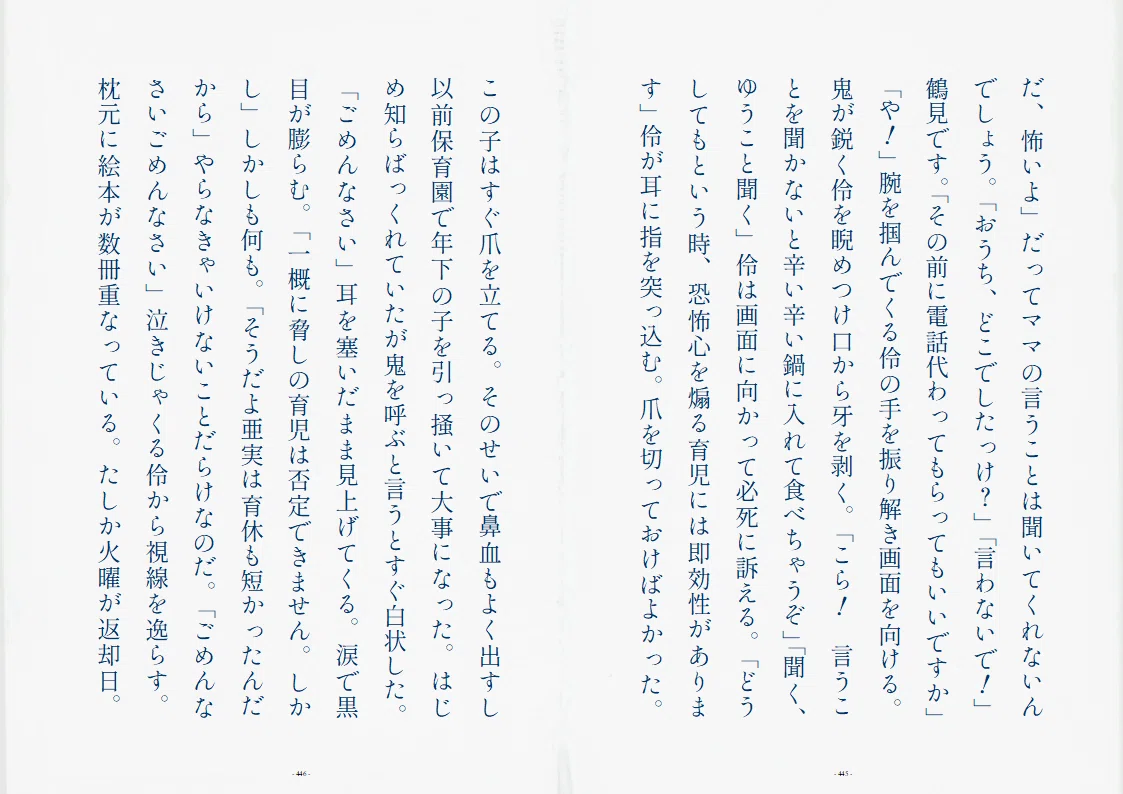 だ、怖いよ」だってママの言うことは聞いてくれないん
でしょう。「おうち、どこでしたっけ？」「言わないで！」
鶴見です。「その前に電話代わってもらってもいいですか」
「や！」腕を掴んでくる伶の手を振り解き画面を向ける。
鬼が鋭く伶を睨めつけ口から牙を剥く。「こら！　言うこ
とを聞かないと辛い辛い鍋に入れて食べちゃうぞ」「聞く、
ゆうこと聞く」伶は画面に向かって必死に訴える。「どう
してもという時、恐怖心を煽る育児には即効性がありま
す」伶が耳に指を突っ込む。爪を切っておけばよかった。
- 445 -
この子はすぐ爪を立てる。そのせいで鼻血もよく出すし
以前保育園で年下の子を引っ掻いて大事になった。はじ
め知らばっくれていたが鬼を呼ぶと言うとすぐ白状した。
「ごめんなさい」耳を塞いだまま見上げてくる。涙で黒
目が膨らむ。「一概に脅しの育児は否定できません。しか
し」しかしも何も。「そうだよ亜実は育休も短かったんだ
から」やらなきゃいけないことだらけなのだ。「ごめんな
さいごめんなさい」泣きじゃくる伶から視線を逸らす。
枕元に絵本が数冊重なっている。たしか火曜が返却日。
- 446 -